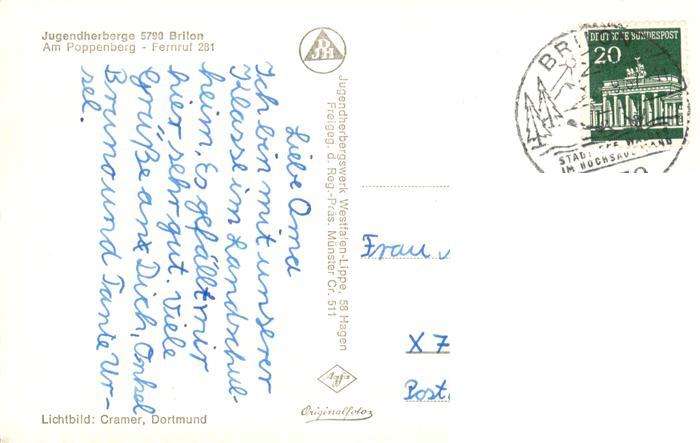 Jugendherberge 5790 Brilon
Am Poppenberg - Fernruf 281
Liebe Oma
Ich bin mit unserer
Klasse im Landschul-
heim. Es gefällt mir
hier sehr gut. Viele
Grüße an Dich, Onkel
Bruno und Tante Ur-
sel.
Lichtbild: Cramer, Dortmund
DJH
Jugendherbergswerk Westfalen-Lippe, 58 Hagen
Freigeg. d. Reg.-Präs. Münster Cr. 511
Agfa
Originalfoto
BRI
STADT
WALD
IM HOCHSAUERLAND
DEUTSCHE BUNDESPOST
20
Frau
X 7
Post.